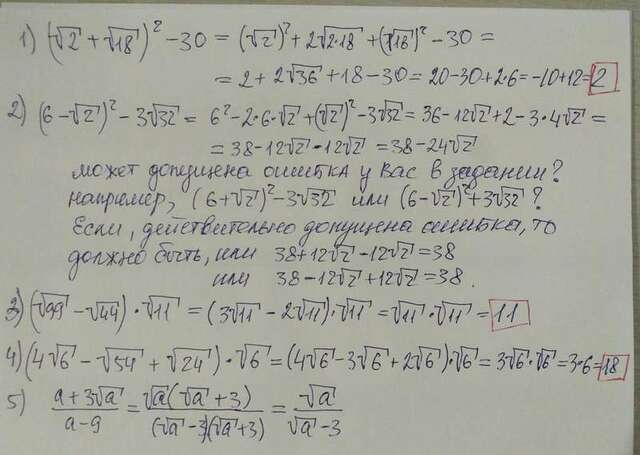 1) (√2 + √18)² − 30 = (√2)² + 2√2·18 + (√18)² − 30 =
= 2 + 2√36 + 18 − 30 = 20 − 30 + 2·6 = −10 + 12 = 2
2) (6 − √2)² − 3√32 = 6² − 2·6·√2 + (√2)² − 3√32 = 36 − 12√2 + 2 − 3·4√2 =
= 38 − 12√2 − 12√2 = 38 − 24√2
может допущена ошибка у вас в задании?
например, (6+√2)² − 3√32 или (6−√2)² + 3√32 ?
Если, действительно допущена ошибка, то
должно быть, или 38+12√2 −12√2 = 38
или 38 − 12√2 + 12√2 = 38.
3) (√99 − √44) · √11 = (3√11 − 2√11) · √11 = √11 · √11 = 11
4) (4√6 − √54 + √24) · √6 = (4√6 − 3√6 + 2√6) · √6 = 3√6 · √6 = 3·6 = 18
5) a+3√a / a−9 = √a(√a+3) / (√a−3)(√a+3) = √a / √a−3